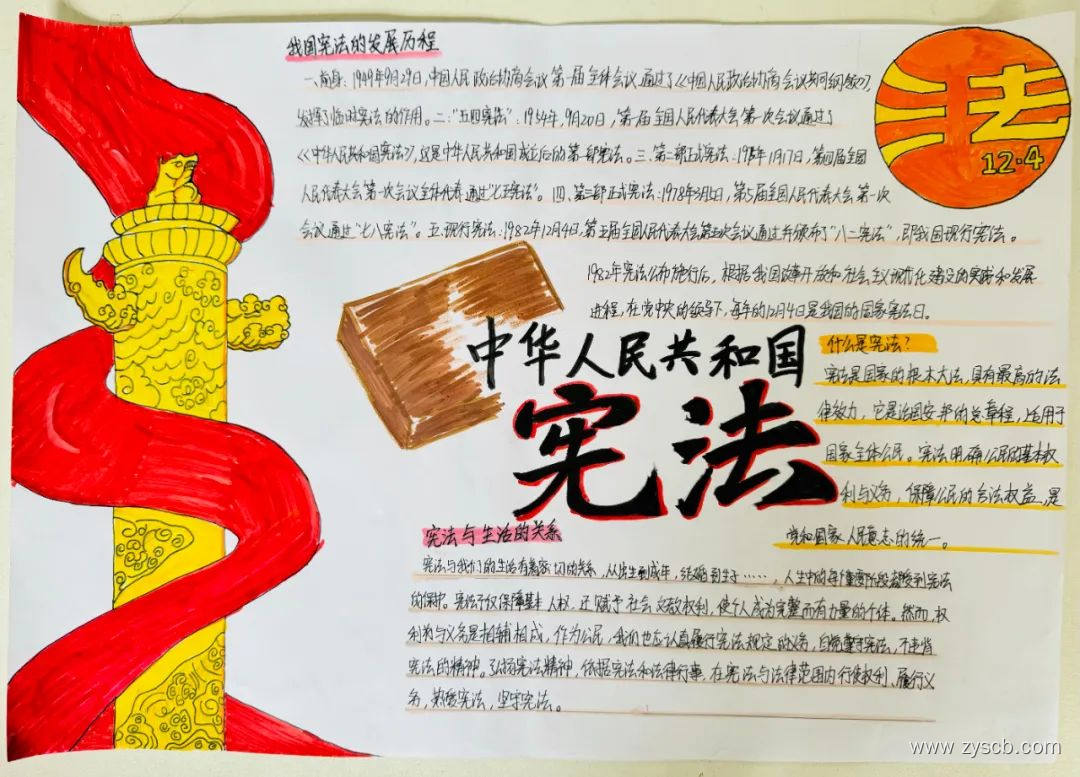 我国宪法的发展历程
一、前身：1949年9月29日，中国人民政治协商会议第一届全体会议通过了《中国人民政治协商会议共同纲领》，
发挥了临时宪法的作用。二："五四宪法"：1954年，9月20日，第一届全国人民代表大会第一次会议通过了
《中华人民共和国宪法》，这是中华人民共和国成立后的第一部宪法。三、第二部正式宪法：1975年1月17日，第四届全国
人民代表大会第一次会议全体代表通过"七五宪法"。四、第三部正式宪法：1978年3月5日，第5届全国人民代表大会第一次
会议通过"七八宪法"。五、现行宪法：1982年12月4日，第五届全国人民代表大会第五次会议通过并颁布了"八二宪法"，即我国现行宪法。
1982年宪法公布施行后，根据我国改革开放和社会主义现代化建设的实践和发展
进程，在党中央的领导下，每年的12月4日是我国的国家宪法日。
法
12·4
中华人民共和国
宪法
什么是宪法？
宪法是国家的根本大法，具有最高的法
律效力，它是治国安邦的总章程，适用于
国家全体公民。宪法明确公民的基本权
利与义务，保障公民的合法权益，是
党和国家人民意志的统一。
宪法与生活的关系
宪法与我们的生活有着密切的关系，从出生到成年，结婚到生子……，人生中的每个重要阶段都受到宪法
的保护。宪法不仅保障基本人权，还赋予社会文教权利，使个人成为完整而有力量的个体。然而，权
利和与义务是相辅相成，作为公民，我们也应认真履行宪法规定的义务，自觉遵守宪法，不违背
宪法的精神。弘扬宪法精神，依据宪法和法律行事，在宪法与法律范围内行使权利、履行义
务，热爱宪法，坚守宪法。
www.zyscb.com